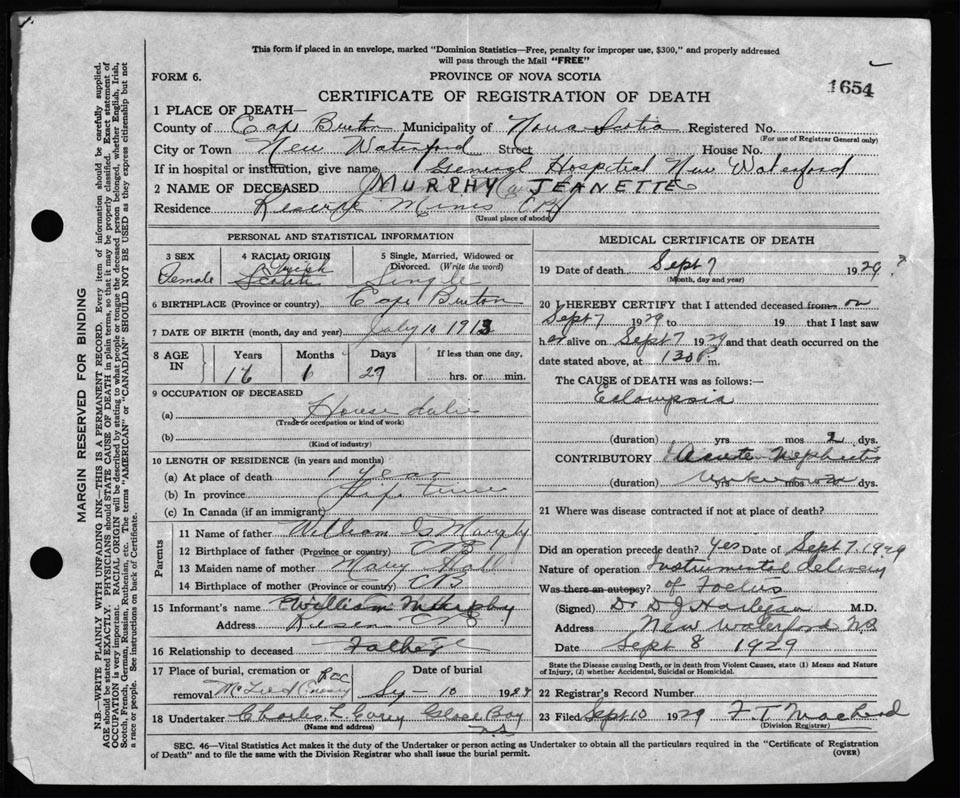 This form if placed in an envelope, marked "Dominion Statistics—Free, penalty for improper use, $300," and properly addressed
will pass through the Mail "FREE"
FORM 6.
PROVINCE OF NOVA SCOTIA
1654
CERTIFICATE OF REGISTRATION OF DEATH
1 PLACE OF DEATH—
County of Cape Breton Municipality of Nova Scotia Registered No.
(For use of Registrar General only)
City or Town New Waterford Street House No.
If in hospital or institution, give name General Hospital New Waterford
2 NAME OF DECEASED MURPHY JEANETTE
Residence Reserve Mines CB
(Usual place of abode)
PERSONAL AND STATISTICAL INFORMATION
3 SEX
Female
4 RACIAL ORIGIN
Irish
Scotch
5 Single, Married, Widowed or
Divorced. (Write the word)
Single
6 BIRTHPLACE (Province or country) Cape Breton
7 DATE OF BIRTH (month, day and year) July 10 1913
8 AGE IN
Years Months Days If less than one day,
16 1 27 hrs. or min.
9 OCCUPATION OF DECEASED
(a) House duties
(Trade or occupation or kind of work)
(b)
(Kind of industry)
10 LENGTH OF RESIDENCE (in years and months)
(a) At place of death 1 Year
(b) In province Life time
(c) In Canada (if an immigrant)
Parents
11 Name of father William Murphy
12 Birthplace of father (Province or country) CB
13 Maiden name of mother Mary
14 Birthplace of mother (Province or country) CB
15 Informant's name William Murphy
Address CB
16 Relationship to deceased Father
17 Place of burial, cremation or
removal
Date of burial
10 1929
18 Undertaker Charles L Curry Glace Bay
N.S
(Name and address)
MEDICAL CERTIFICATE OF DEATH
19 Date of death Sept 7 1929 ?
(Month, day and year)
20 I HEREBY CERTIFY that I attended deceased from on
Sept 7 1929 to 19 that I last saw
her alive on Sept 7 1929 and that death occurred on the
date stated above, at 130 P m.
The CAUSE OF DEATH was as follows:—
Eclampsia
(duration) yrs mos 2 dys.
CONTRIBUTORY Acute Nephritis
(duration) Unknown yrs mos dys.
21 Where was disease contracted if not at place of death?
Did an operation precede death? Yes Date of Sept 7 1929
Nature of operation Instrumental delivery
Was there an autopsy? of Foetus
(Signed) Dr D J Hartigan M.D.
Address New Waterford N.S
Date Sept 8 1929
State the Disease causing Death, or in death from Violent Causes, state (1) Means and Nature
of Injury, (2) whether Accidental, Suicidal or Homicidal.
22 Registrar's Record Number
23 Filed Sept 10 1929 F. T. MacLeod
(Division Registrar)
SEC. 46—Vital Statistics Act makes it the duty of the Undertaker or person acting as Undertaker to obtain all the particulars required in the "Certificate of Registration
of Death" and to file the same with the Division Registrar who shall issue the burial permit.
(OVER)
MARGIN RESERVED FOR BINDING
N.B.—WRITE PLAINLY WITH UNFADING INK—THIS IS A PERMANENT RECORD. Every item of information should be carefully supplied.
AGE should be stated EXACTLY. PHYSICIANS should STATE CAUSE OF DEATH in plain terms, so that it may be properly classified. Exact statement of
OCCUPATION is very important. RACIAL ORIGIN will be described by stating to what people or tongue the deceased person belonged, whether English, Irish,
Scotch, French, German, Russian, Ruthenian, etc. The terms "AMERICAN" or "CANADIAN" SHOULD NOT BE USED as they express citizenship but not
a race or people. See instructions on back of Certificate.